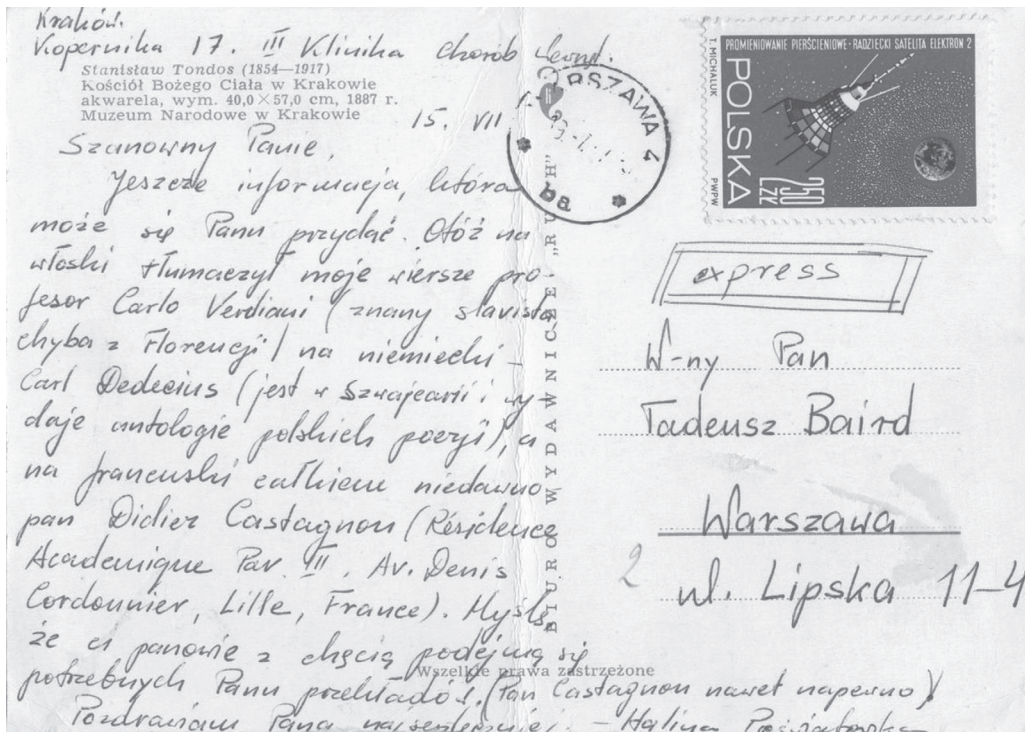 Kraków.
Kopernika 17. III Klinika chorób wewn.
Stanisław Tondos (1854—1917)
Kościół Bożego Ciała w Krakowie
akwarela, wym. 40,0×57,0 cm, 1887 r.
Muzeum Narodowe w Krakowie
15. VII
Szanowny Panie,
Jeszcze informacja, która
może się Panu przydać. Otóż na
włoski tłumaczył moje wiersze pro-
fesor Carlo Verdiani (znany slavista
chyba z Florencji) na niemiecki –
Carl Dedecius (jest w Szwajcarii i wy-
daje antologie polskich poezji), a
na francuski całkiem niedawno
pan Didier Castagnon (Résidence
Academique Pav. III, Av. Denis
Cordonnier, Lille, France). Myślę,
że ci panowie z chęcią podejmą się
potrzebnych Panu przekładów. (Pan Castagnon nawet napewno)
Pozdrawiam Pana najserdeczniej. – Halina Poświatowska
BIURO WYDAWNICZE „RUCH"
Wszelkie prawa zastrzeżone
WARSZAWA 4
ba
PROMIENIOWANIE PIERŚCIENIOWE-RADZIECKI SATELITA ELEKTRON 2
T. MICHALUK
POLSKA
PWPW
250 ZŁ
express
W-ny Pan
Tadeusz Baird
Warszawa
2
ul. Lipska 11-4